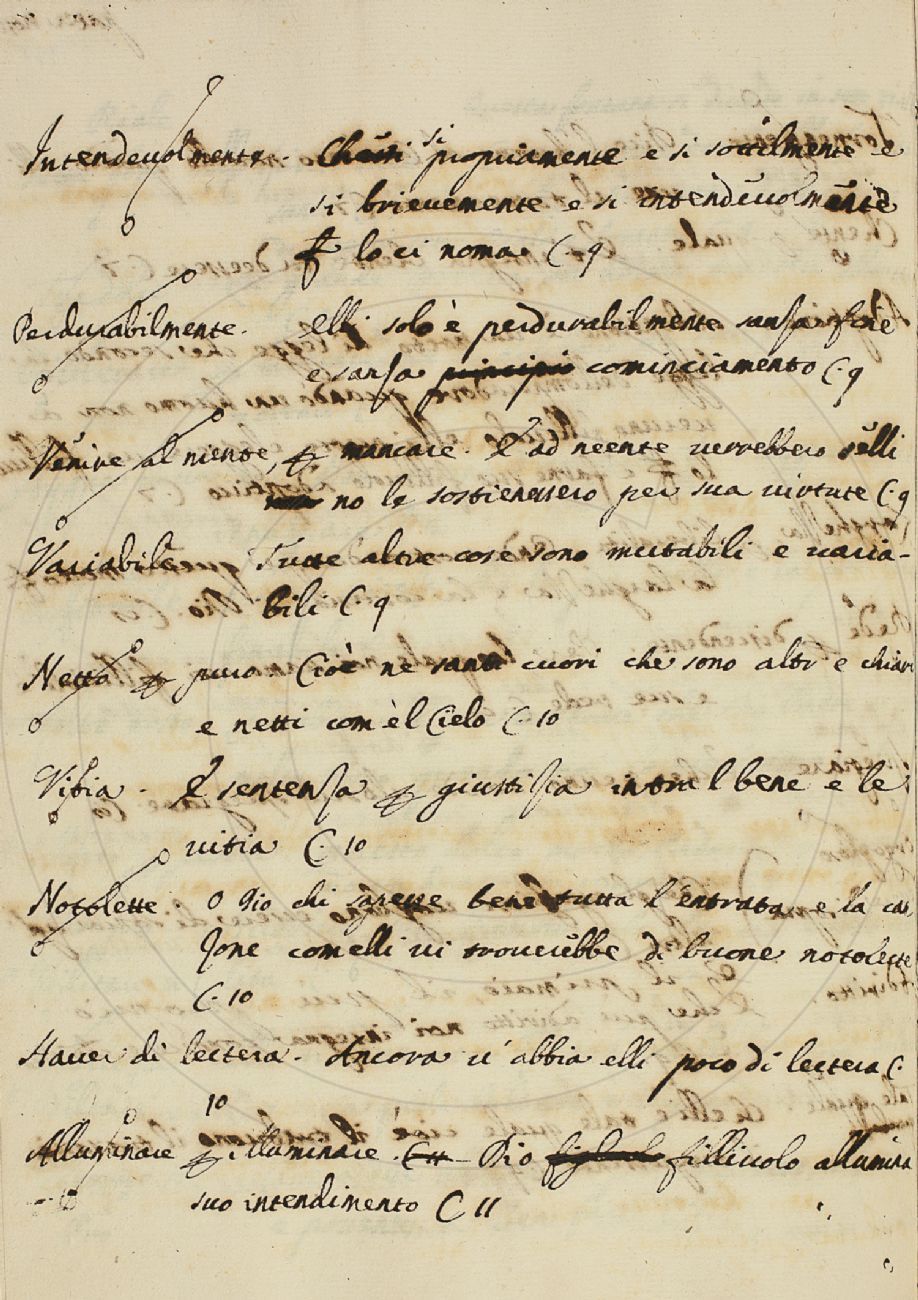 Intendevolmente. si propriamente e si sottilmente e
si brievemente e si intendevolmente
lo ci noma C. 9
Perdurabilmente. elli solo è perdurabilmente sansa fine
e sansa principio cominciamento C. 9
Venire al niente, mancare. E ad neente verrebbero selli
no le sostienessero per sua virtute C. 9
Variabile Tutte altre cose sono mutabili e varia-
bili C. 9
Netto puro Cioè ne santi cuori che sono alti e chiari
e netti com'èl Cielo C. 10
Vitia. E sentensa giustisia intra l bene e le
vitia C. 10
Notolette O Dio chi sapesse bene tutta l'entrata e la
com elli vi troverebbe di buone notolecte
C. 10
Haver di lectera. Ancora v'abbia elli poco di lectera C.
10
Alluminare illuminare. Dio fillivolo allumina
suo intendimento C 11